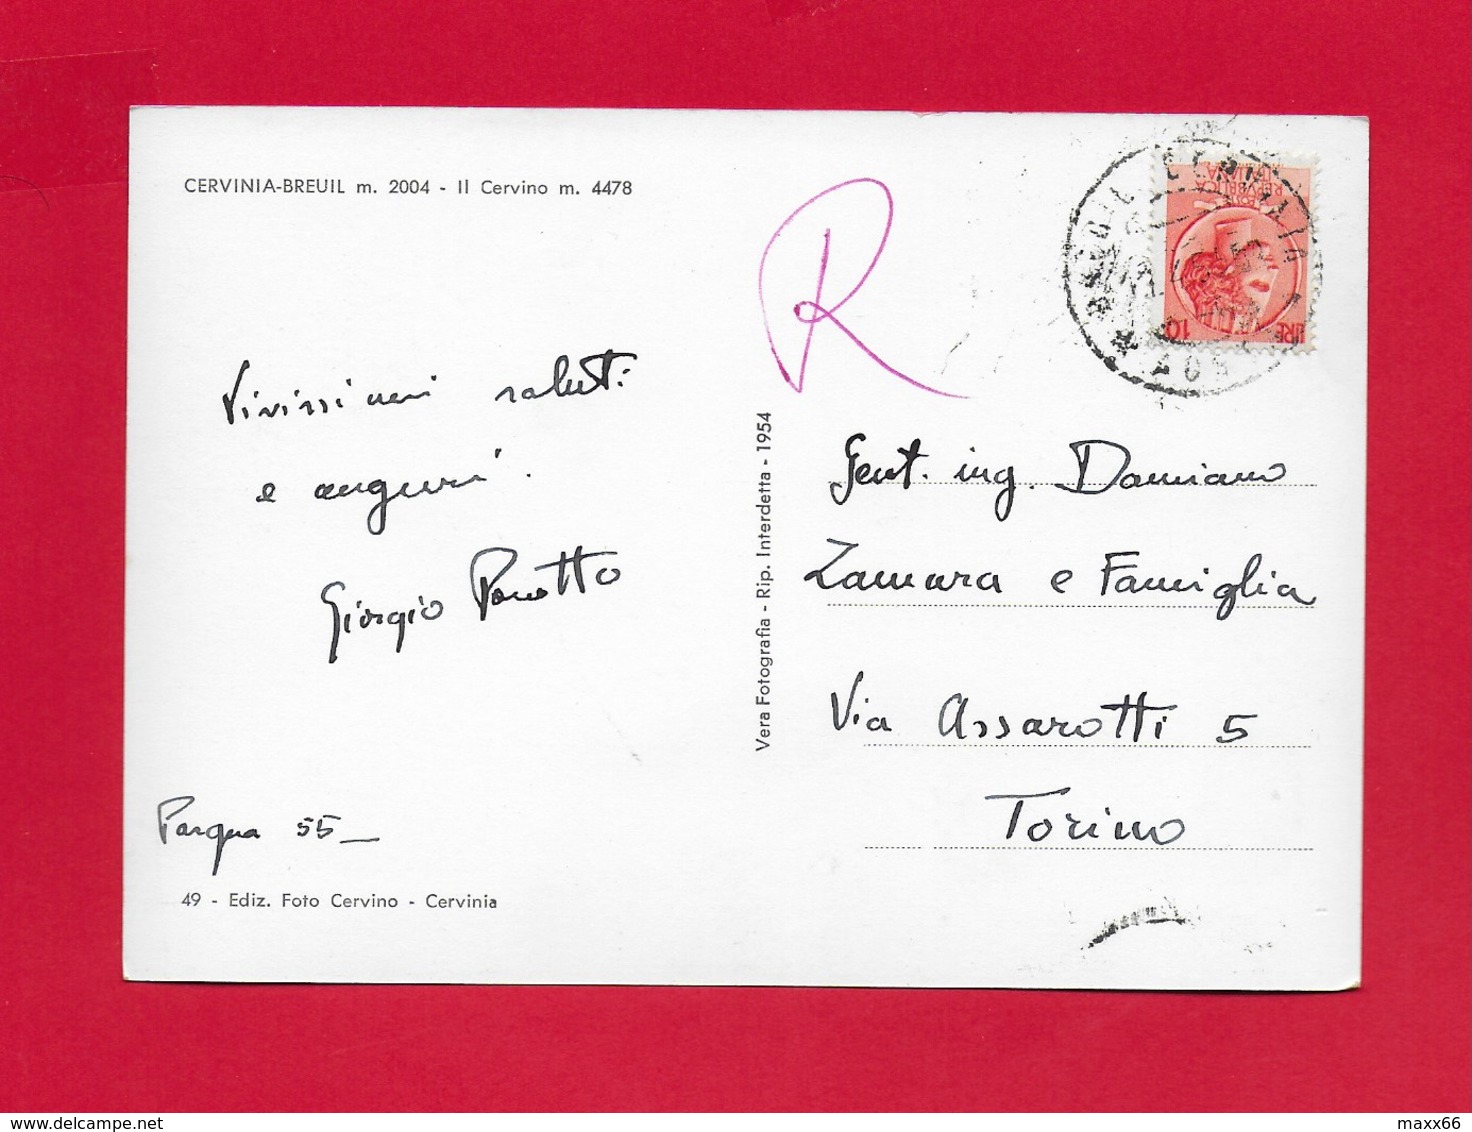 CERVINIA-BREUIL m. 2004 - Il Cervino m. 4478
Vivissimi saluti
e auguri.
Giorgio
Pasqua 55
49 - Ediz. Foto Cervino - Cervinia
Vera Fotografia - Rip. Interdetta - 1954
R
REPUBBLICA
ITALIANA
LIRE 10
AOS
Gent. ing. Damiano
Zamara e Famiglia
Via Assarotti 5
Torino
maxx66